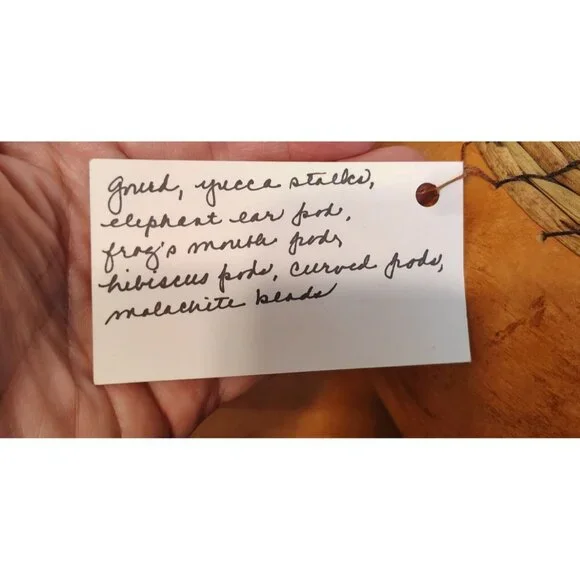 Gourd, yucca stalks,
elephant ear pod,
frog's mouth pods
hibiscus pods, curved pods,
malachite beads